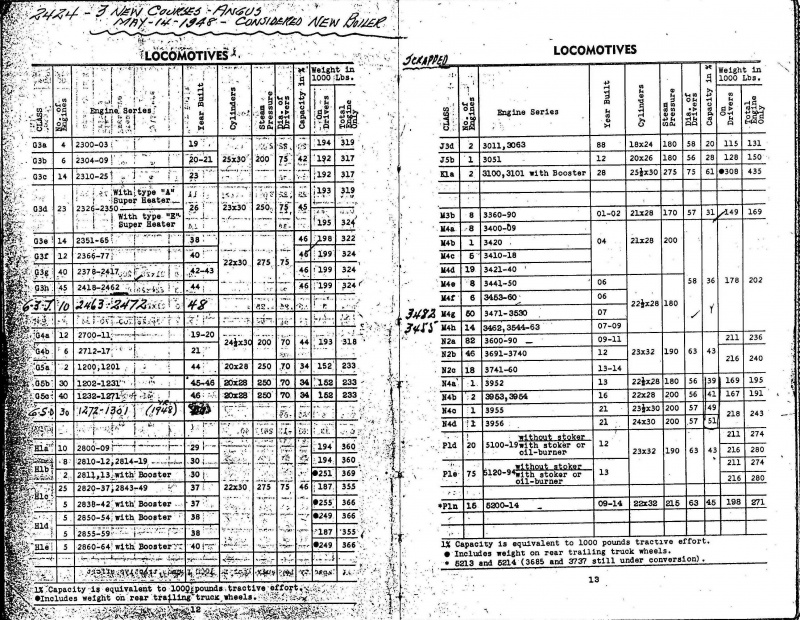 2424 - 3 NEW COURSES - ANGUS
MAY-14-1948 - CONSIDERED NEW BOILER
LOCOMOTIVES
CLASS No. of Engines Engine Series Year Built Cylinders Steam Pressure Dia. of Drivers Capacity in % Weight in 1000 Lbs. On Drivers Total Engine Only
G3a 4 2300-03 19 194 319
G3b 6 2304-09 20-21 25x30 200 75 42 192 317
G3c 14 2310-25 23 192 317
G3d 23 2326-2350 With type "A" Super Heater 26 23x30 250 75 45 193 319
With type "E" Super Heater 195 324
G3e 14 2351-65 38 46 198 322
G3f 12 2366-77 40 22x30 275 75 46 199 324
G3g 40 2378-2417 42-43 46 199 324
G3h 45 2418-2462 44 46 199 324
G-3-J. 10 2463-2472 48
G4a 12 2700-11 19-20 24½x30 200 70 44 193 318
G4b 6 2712-17 21
G5a 2 1200,1201 44 20x28 250 70 34 152 233
G5b 30 1202-1231 45-46 20x28 250 70 34 152 233
G5c 40 1232-1271 46 20x28 250 70 34 152 233
30 1272-1301 (1948)
H1a 10 2800-09 29 194 360
H1b 8 2810-12,2814-19 30 194 360
2 2811,13 with Booster 30 ●251 369
H1c 25 2820-37,2843-49 37 22x30 275 75 46 187 355
5 2838-42 with Booster 37 ●255 366
H1d 5 2850-54 with Booster 38 ●249 366
5 2855-59 38 187 355
H1e 5 2860-64 with Booster 40 ●249 366
1% Capacity is equivalent to 1000 pounds tractive effort.
●Includes weight on rear trailing truck wheels.
12
SCRAPPED
LOCOMOTIVES
CLASS No. of Engines Engine Series Year Built Cylinders Steam Pressure Dia. of Drivers Capacity in % Weight in 1000 Lbs. On Drivers Total Engine Only
J3d 2 3011,3063 88 18x24 180 58 20 115 131
J5b 1 3051 12 20x26 180 56 28 128 150
K1a 2 3100,3101 with Booster 28 25½x30 275 75 61 ●308 435
M3b 8 3360-90 01-02 21x28 170 57 31 149 169
M4a 8 3400-09
M4b 1 3420 04 21x28 200
M4c 5 3410-18
M4d 19 3421-40
M4e 8 3441-50 06 58 36 178 202
M4f 6 3453-60 06 22½x28 180
3482 M4g 50 3471-3530 07
3455 M4h 14 3462,3544-63 07-09
N2a 82 3600-90 09-11 211 236
N2b 46 3691-3740 12 23x32 190 63 43 216 240
N2c 18 3741-60 13-14
N4a 1 3952 13 22½x28 180 56 39 169 195
N4b 2 3953,3954 16 22x28 200 56 41 167 191
N4c 1 3955 21 23½x30 200 57 49 218 243
N4d 1 3956 21 24x30 200 57 51
P1d 20 5100-19 without stoker 12 211 274
with stoker or oil-burner 23x32 190 63 43 216 280
P1e 75 5120-94 without stoker 13 211 274
with stoker or oil-burner 216 280
*P1n 15 5200-14 09-14 22x32 215 63 45 198 271
1% Capacity is equivalent to 1000 pounds tractive effort.
● Includes weight on rear trailing truck wheels.
* 5213 and 5214 (3685 and 3737 still under conversion).
13